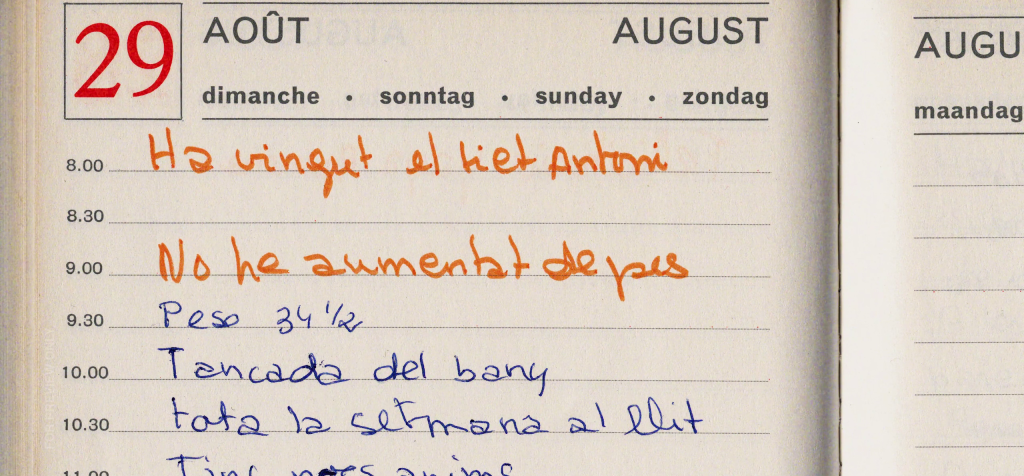 29
AOÛT AUGUST
dimanche · sonntag · sunday · zondag
8.00 Ha vingut el tiet Antoni
8.30
9.00 No he aumentat de pes
9.30 Peso 34 1/2
10.00 Tancada del bany
10.30 tota la setmana al llit
11.00 Tinc pocs anims
AUGU
maandag